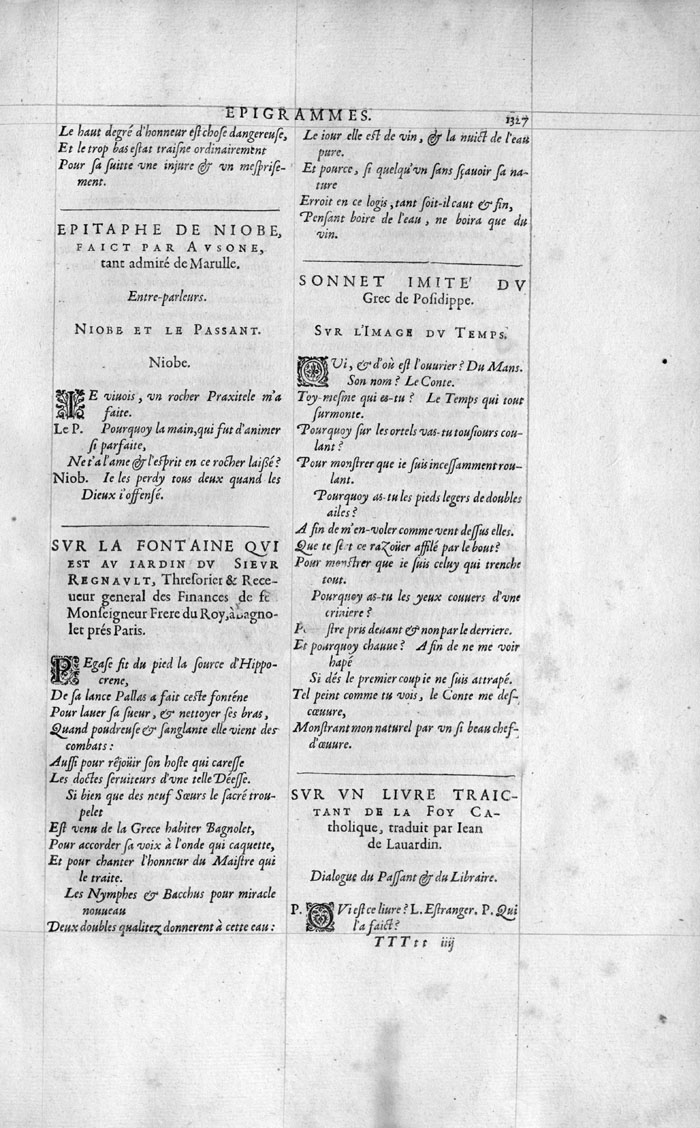 EPIGRAMMES. 1327
Le haut degré d'honneur est chose dangereuse,
Et le trop bas estat traisne ordinairement
Pour sa suitte vne injure & vn mesprise-
ment.
EPITAPHE DE NIOBE,
FAICT PAR AVSONE,
tant admiré de Marulle.
Entre-parleurs.
NIOBE ET LE PASSANT.
Niobe.
IE viuois, vn rocher Praxitele m'a
faite.
Le P. Pourquoy la main, qui fut d'animer
si parfaite,
Ne t'a l'ame & l'esprit en ce rocher laissé?
Niob. Ie les perdy tous deux quand les
Dieux i'offensé.
SVR LA FONTAINE QVI
EST AV IARDIN DV SIEVR
REGNAVLT, Thresorier & Rece-
ueur general des Finances de
Monseigneur Frere du Roy, à Bagno-
let prés Paris.
PEgase fit du pied la source d'Hippo-
crene,
De sa lance Pallas a fait ceste fonténe
Pour lauer sa sueur, & nettoyer ses bras,
Quand poudreuse & sanglante elle vient des
combats:
Aussi pour réjoüir son hoste qui caresse
Les doctes seruiteurs d'vne telle Déesse.
Si bien que des neuf Sœurs le sacré trou-
pelet
Est venu de la Grece habiter Bagnolet,
Pour accorder sa voix à l'onde qui caquette,
Et pour chanter l'honneur du Maistre qui
le traite.
Les Nymphes & Bacchus pour miracle
nouueau
Deux doubles qualitez donnerent à cette eau:
Le iour elle est de vin, & la nuict de l'eau
pure.
Et pource, si quelqu'vn sans sçauoir sa na-
ture
Erroit en ce logis, tant soit-il caut & fin,
Pensant boire de l'eau, ne boira que du
vin.
SONNET IMITE' DV
Grec de Posidippe.
SVR L'IMAGE DV TEMPS.
QVi, & d'où est l'ouurier? Du Mans.
Son nom? Le Conte.
Toy-mesme qui es-tu? Le Temps qui tout
surmonte.
Pourquoy sur les ortels vas-tu tousiours cou-
lant?
Pour monstrer que ie suis incessamment rou-
lant.
Pourquoy as-tu les pieds legers de doubles
ailes?
A fin de m'en-voler comme vent dessus elles.
Que te sert ce razoüer affilé par le bout?
Pour monstrer que ie suis celuy qui trenche
tout.
Pourquoy as-tu les yeux couuers d'vne
criniere?
stre pris deuant & non par le derriere.
Et pourquoy chauue? A fin de ne me voir
hapé
Si dés le premier coup ie ne suis attrapé.
Tel peint comme tu vois, le Conte me des-
cœuure,
Monstrant mon naturel par vn si beau chef-
d'œuure.
SVR VN LIVRE TRAIC-
TANT DE LA FOY CA-
tholique, traduit par Iean
de Lauardin.
Dialogue du Passant & du Libraire.
P. QVi est ce liure? L. Estranger. P. Qui
l'a faict?
TTTtt iiij